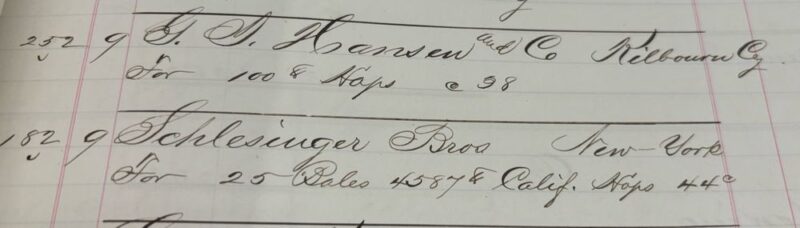 252 9 G. S. Hansen and Co Kilbourn Cy.
For 100 ℔ Hops @ 98
182 9 Schlesinger Bros New-York
For 25 Bales 4587 ℔ Calif. Hops 44c